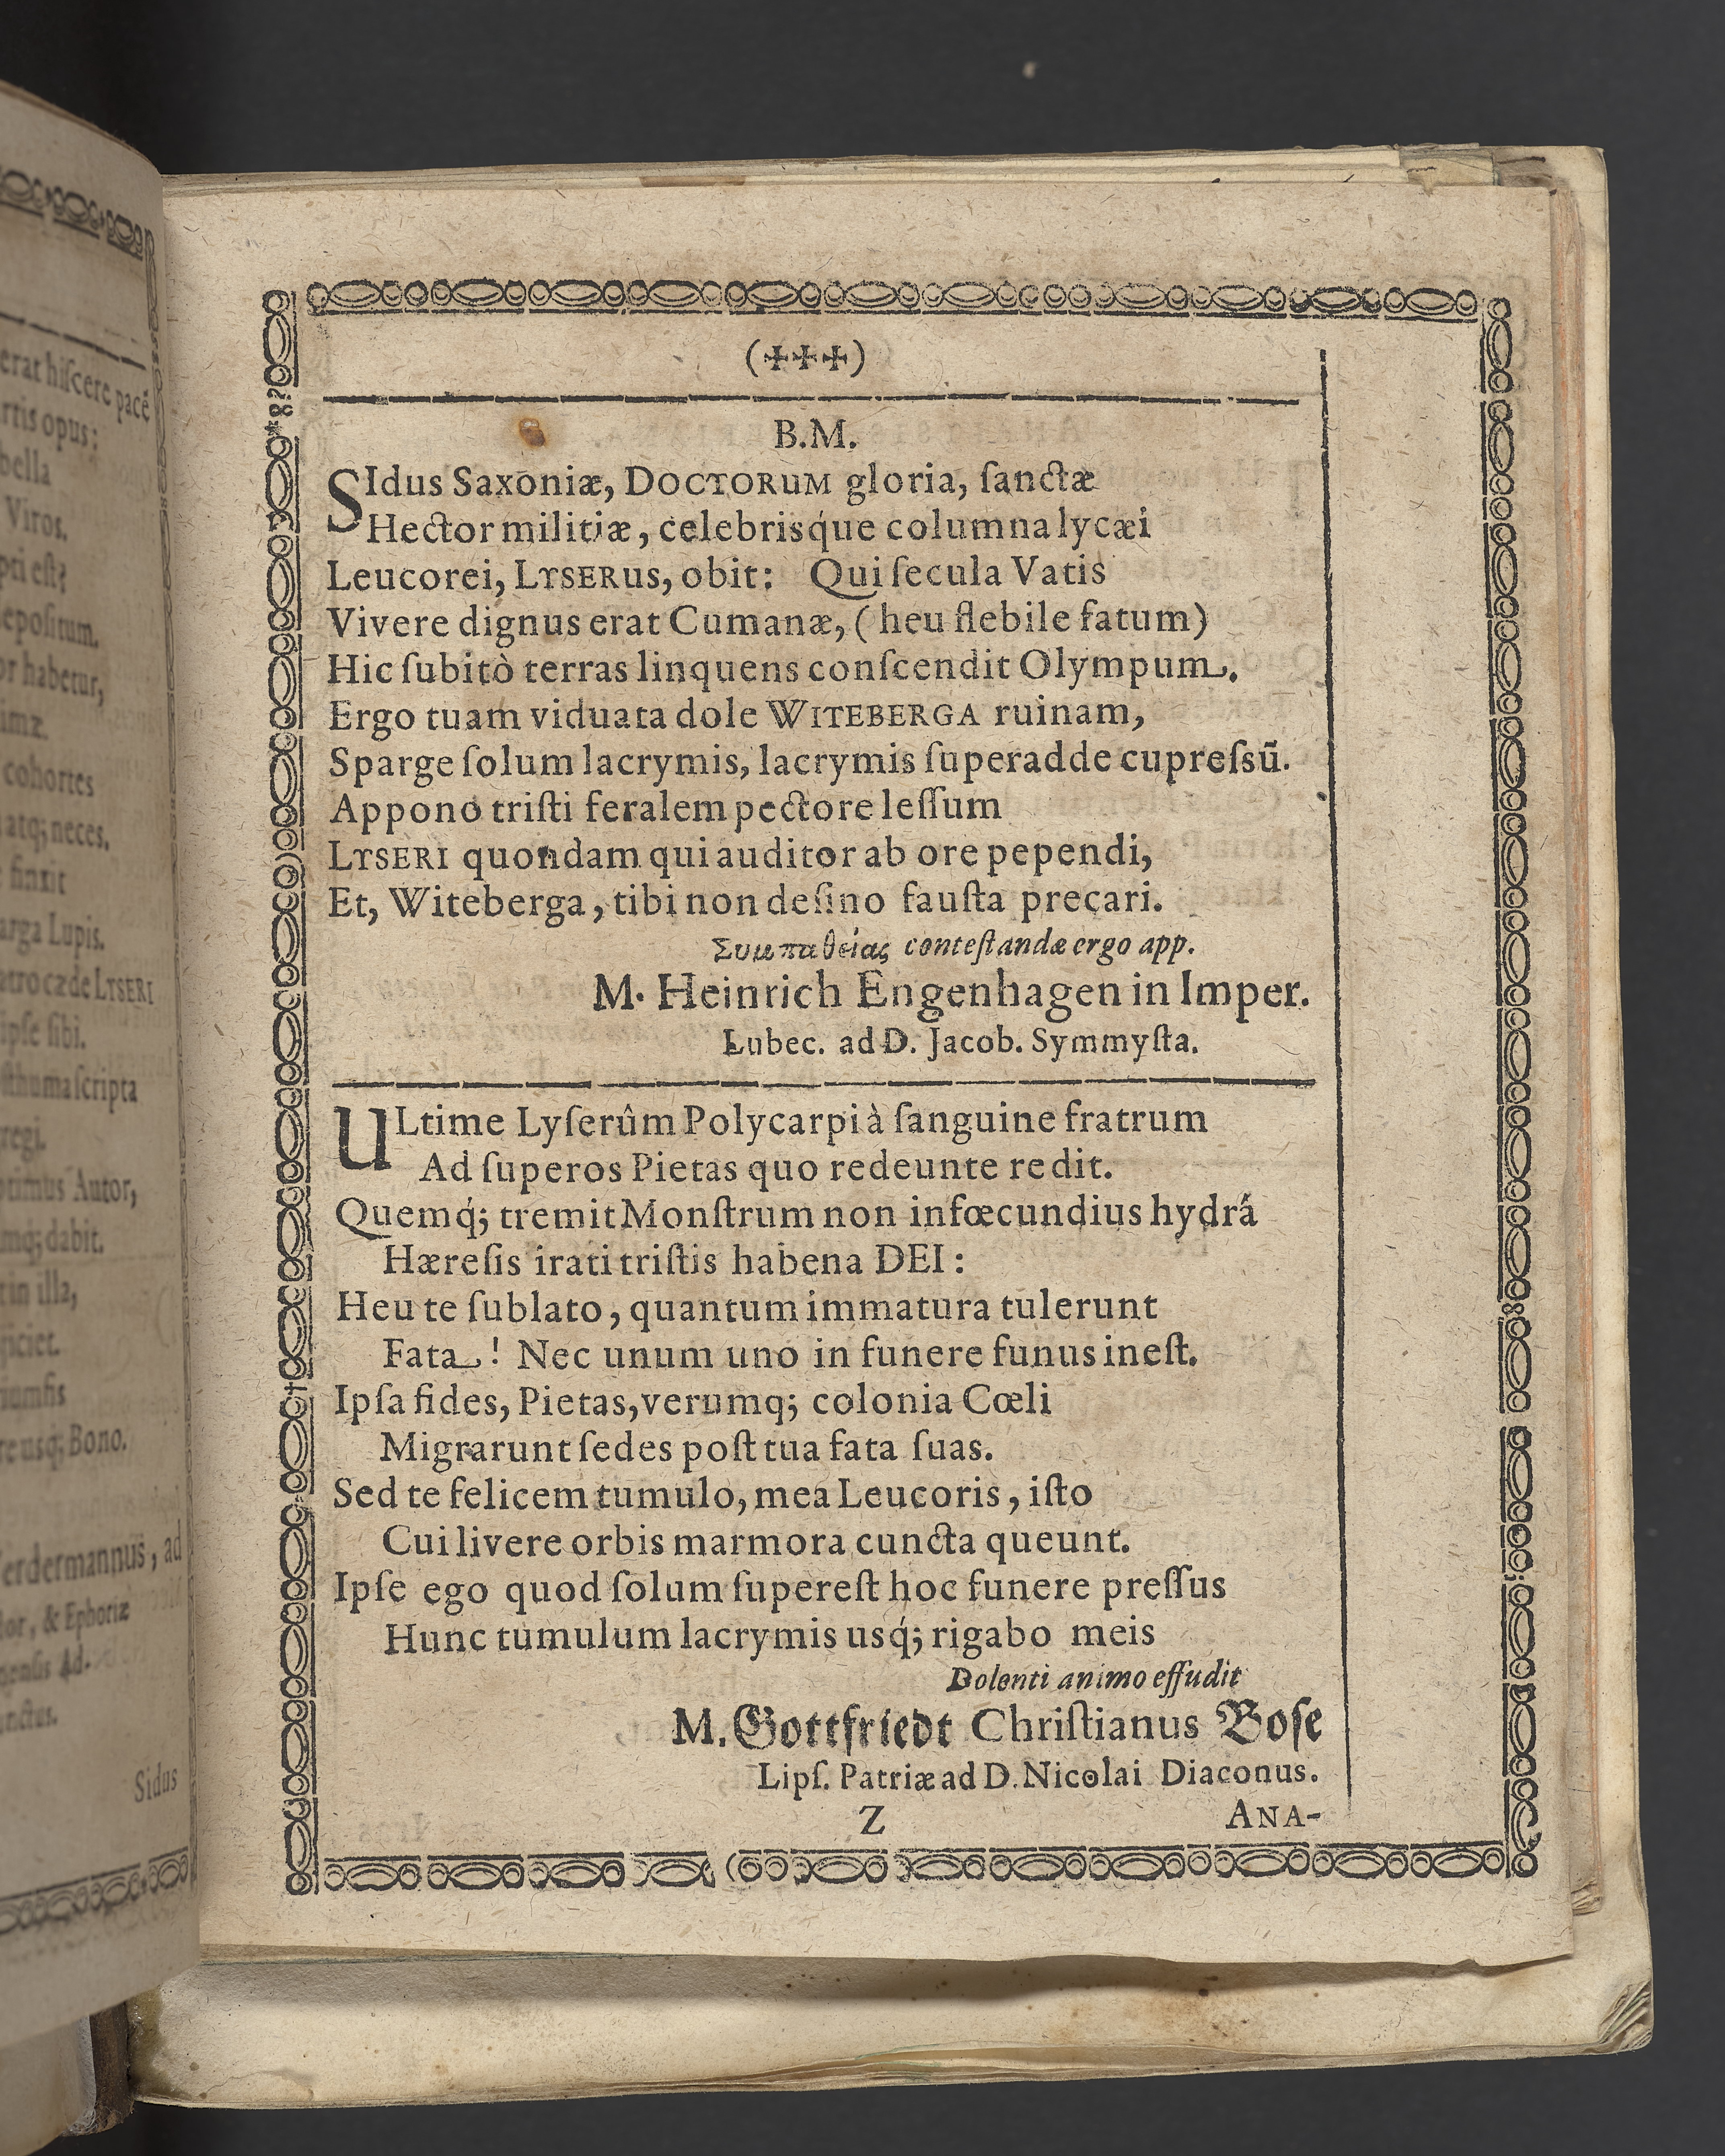 erat hiſcere pacē
rtis opus;
bella
Viros.
pti eſt?
epoſitum.
or habetur,
imæ.
cohortes
atq; neces.
finxit
arga Lupis.
atro cæde LYSERI
ipſe ſibi.
ſthuma ſcripta
regi.
otimus Autor,
mq; dabit.
in illa,
ficiet.
iumfis
re usq; Bono.
erdermannus, ad
tor, & Ephoriæ
genſis Ad-
unctus.
Sidus
(✠✠✠)
B.M.
SIdus Saxoniæ, DOCTORUM gloria, ſanctæ
Hector militiæ, celebrisq́ue columna lycæi
Leucorei, LYSERUS, obit: Qui ſecula Vatis
Vivere dignus erat Cumanæ, ( heu flebile fatum)
Hic ſubitò terras linquens conſcendit Olympum.
Ergo tuam viduata dole WITEBERGA ruinam,
Sparge ſolum lacrymis, lacrymis ſuperadde cupreſsū.
Appono triſti feralem pectore leſſum
LYSERI quondam qui auditor ab ore pependi,
Et, Witeberga, tibi non deſino fauſta precari.
Συμπαθείας conteſtandæ ergo app.
M. Heinrich Engenhagen in Imper.
Lubec. ad D. Jacob. Symmyſta.
ULtime Lyſerûm Polycarpi à ſanguine fratrum
Ad ſuperos Pietas quo redeunte redit.
Quemq́; tremit Monſtrum non infœcundius hydrâ
Hæreſis irati triſtis habena DEI:
Heu te ſublato, quantum immatura tulerunt
Fata! Nec unum uno in funere funus ineſt.
Ipſa fides, Pietas, verumq; colonia Cœli
Migrarunt ſedes poſt tua fata ſuas.
Sed te felicem tumulo, mea Leucoris, iſto
Cui livere orbis marmora cuncta queunt.
Ipſe ego quod ſolum ſupereſt hoc funere preſſus
Hunc tumulum lacrymis usq́; rigabo meis
Dolenti animo effudit
M. Gottfriedt Chriſtianus Boſe
Lipſ. Patriæ ad D. Nicolai Diaconus.
Z ANA-